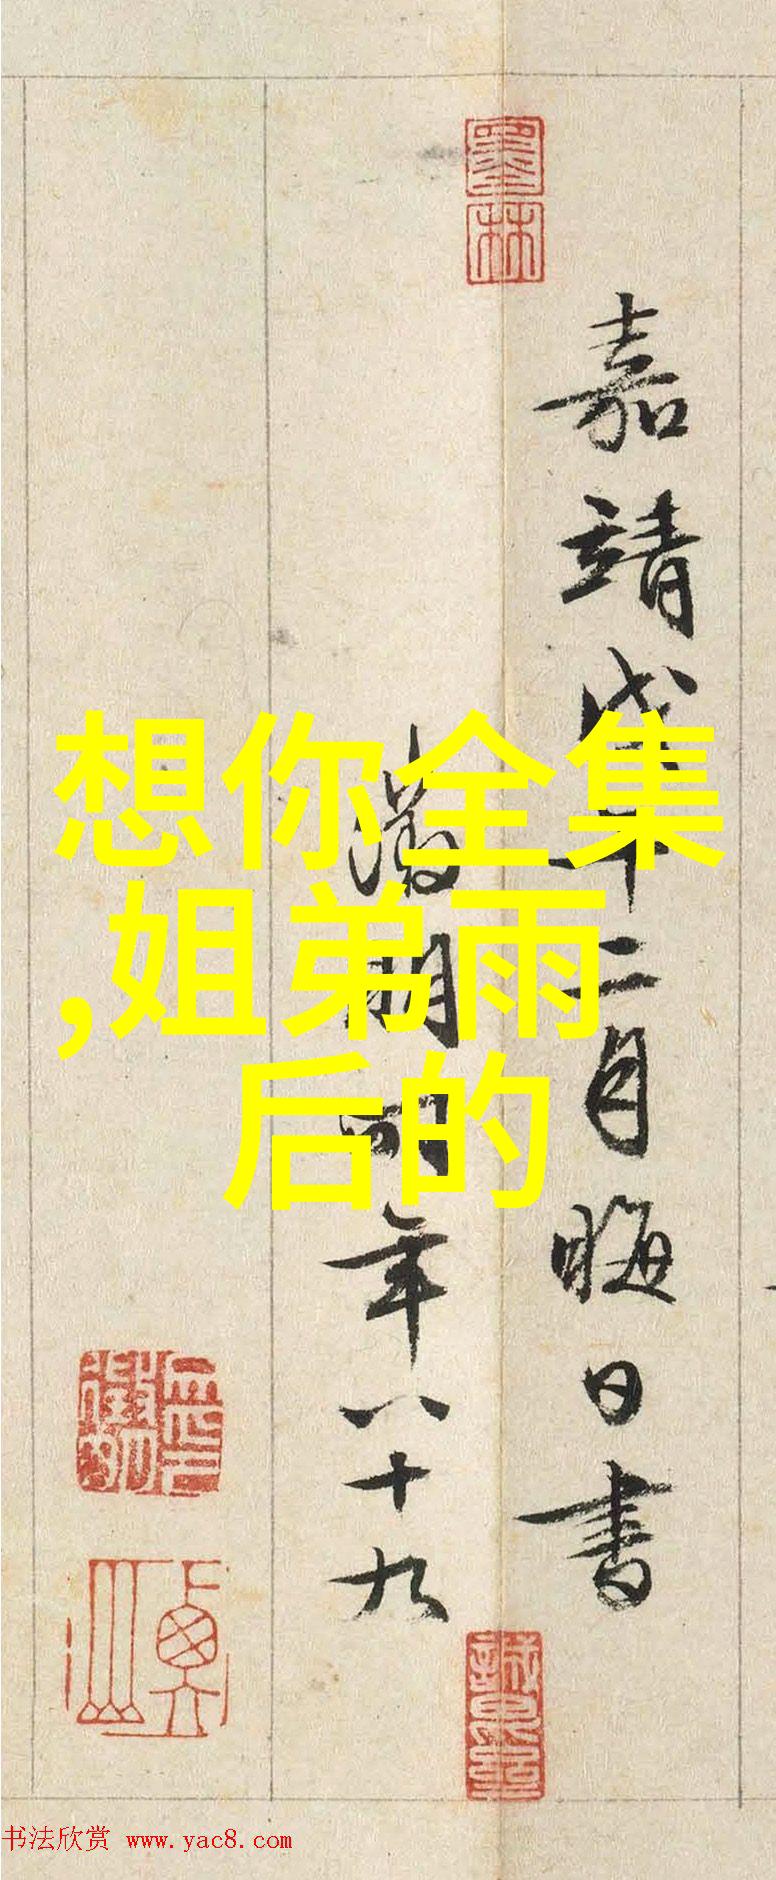 嘉靖戊午二月晦日書
徵明時年八十九
想你全集
,姐弟雨
后的
墨林
书法欣赏 www.yac8.com